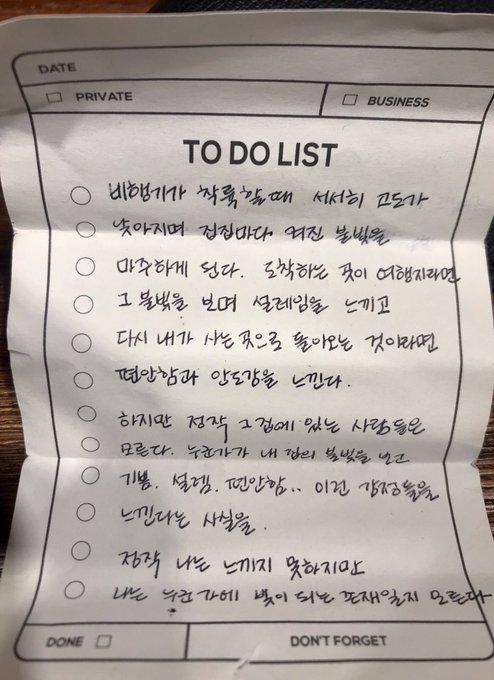 DATE
PRIVATE
BUSINESS
TO DO LIST
비행기가 착륙할때 서서히 고도가
낮아지며 집집마다 켜진 불빛을
마주하게 된다. 도착하는 곳이 여행지라면
그 불빛을 보며 설레임을 느끼고
다시 내가 사는 곳으로 돌아오는 것이라면
편안함과 안도감을 느낀다.
하지만 정작 그 집에 있는 사람들은
모른다. 누군가가 내 집의 불빛을 보고
기쁨. 설렘. 편안함.. 이런 감정들을
느낀다는 사실을.
정작 나는 느끼지 못하지만
나는 누군가에 빛이 되는 존재일지 모른다
DONE
DON'T FORGET